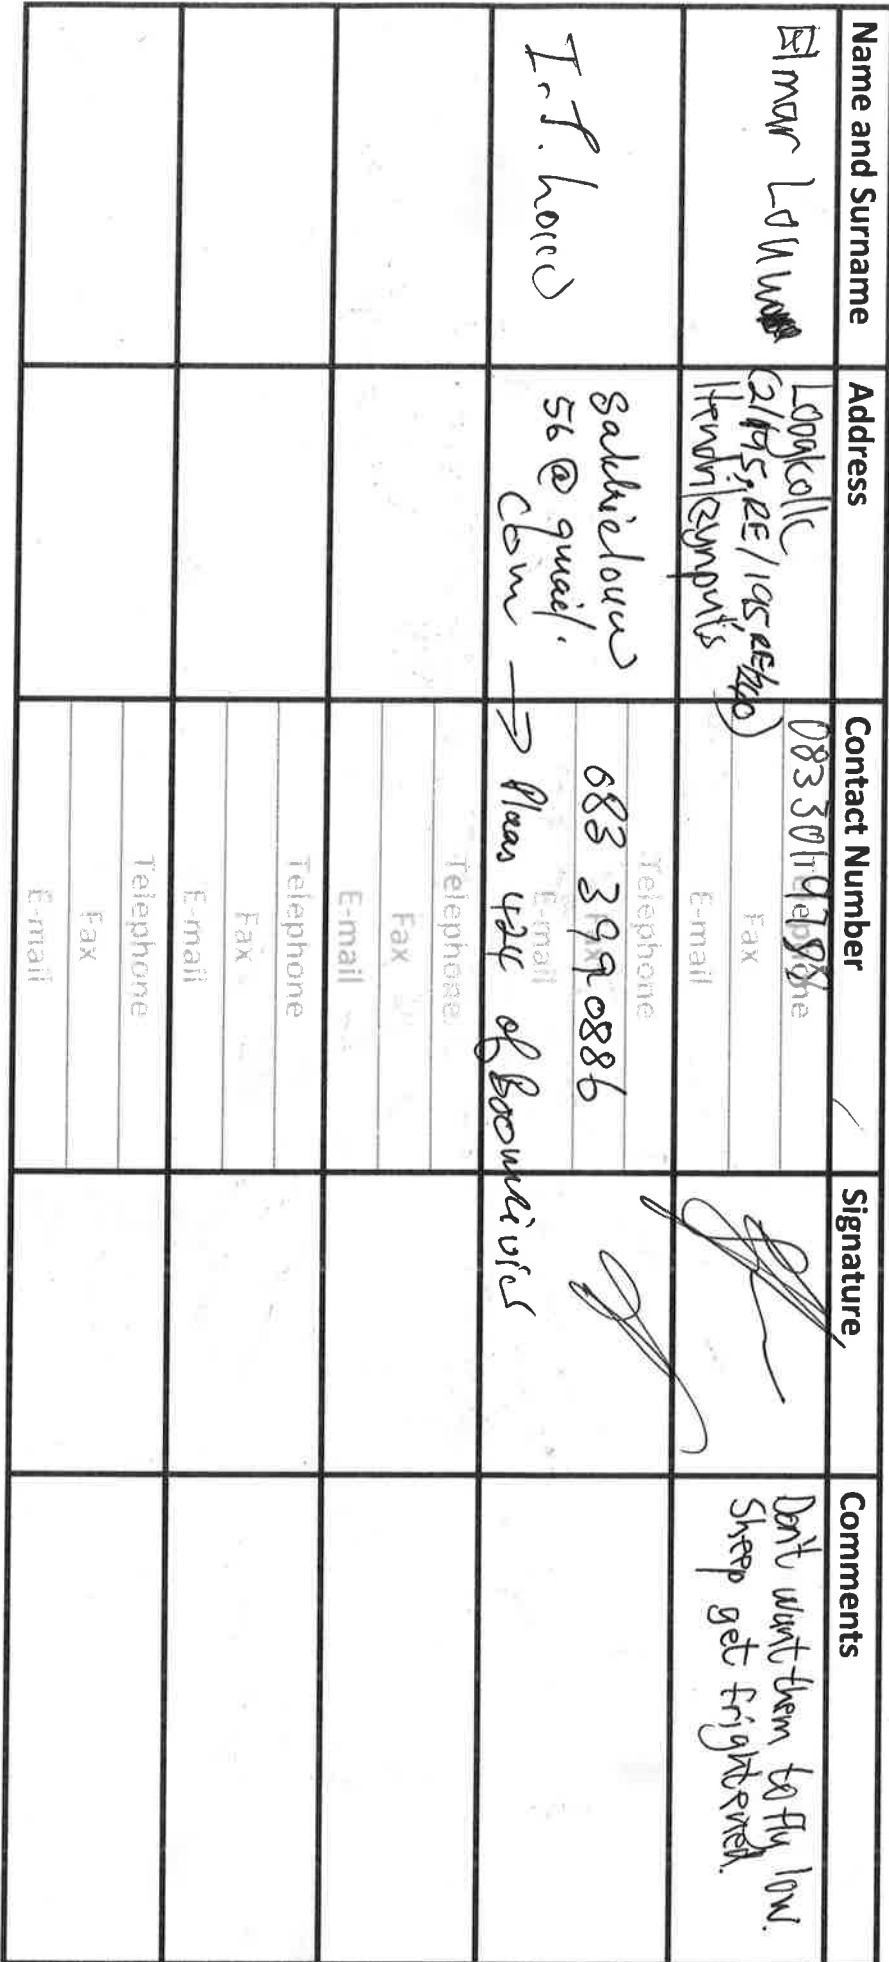 Name and Surname Address Contact Number Signature Comments
Elmar Louw
(2/195, RE/195, RE/240)
083 301 9788
Telephone
Fax
E-mail
Don't want them to fly low.
Sheep get frightened.
Sakkielouw
56 @ gmail.
com → Plaas 424 of Boomrivier
083 399 0886
Telephone
Fax
E-mail
Telephone
Fax
E-mail
Telephone
Fax
E-mail
Telephone
Fax
E-mail